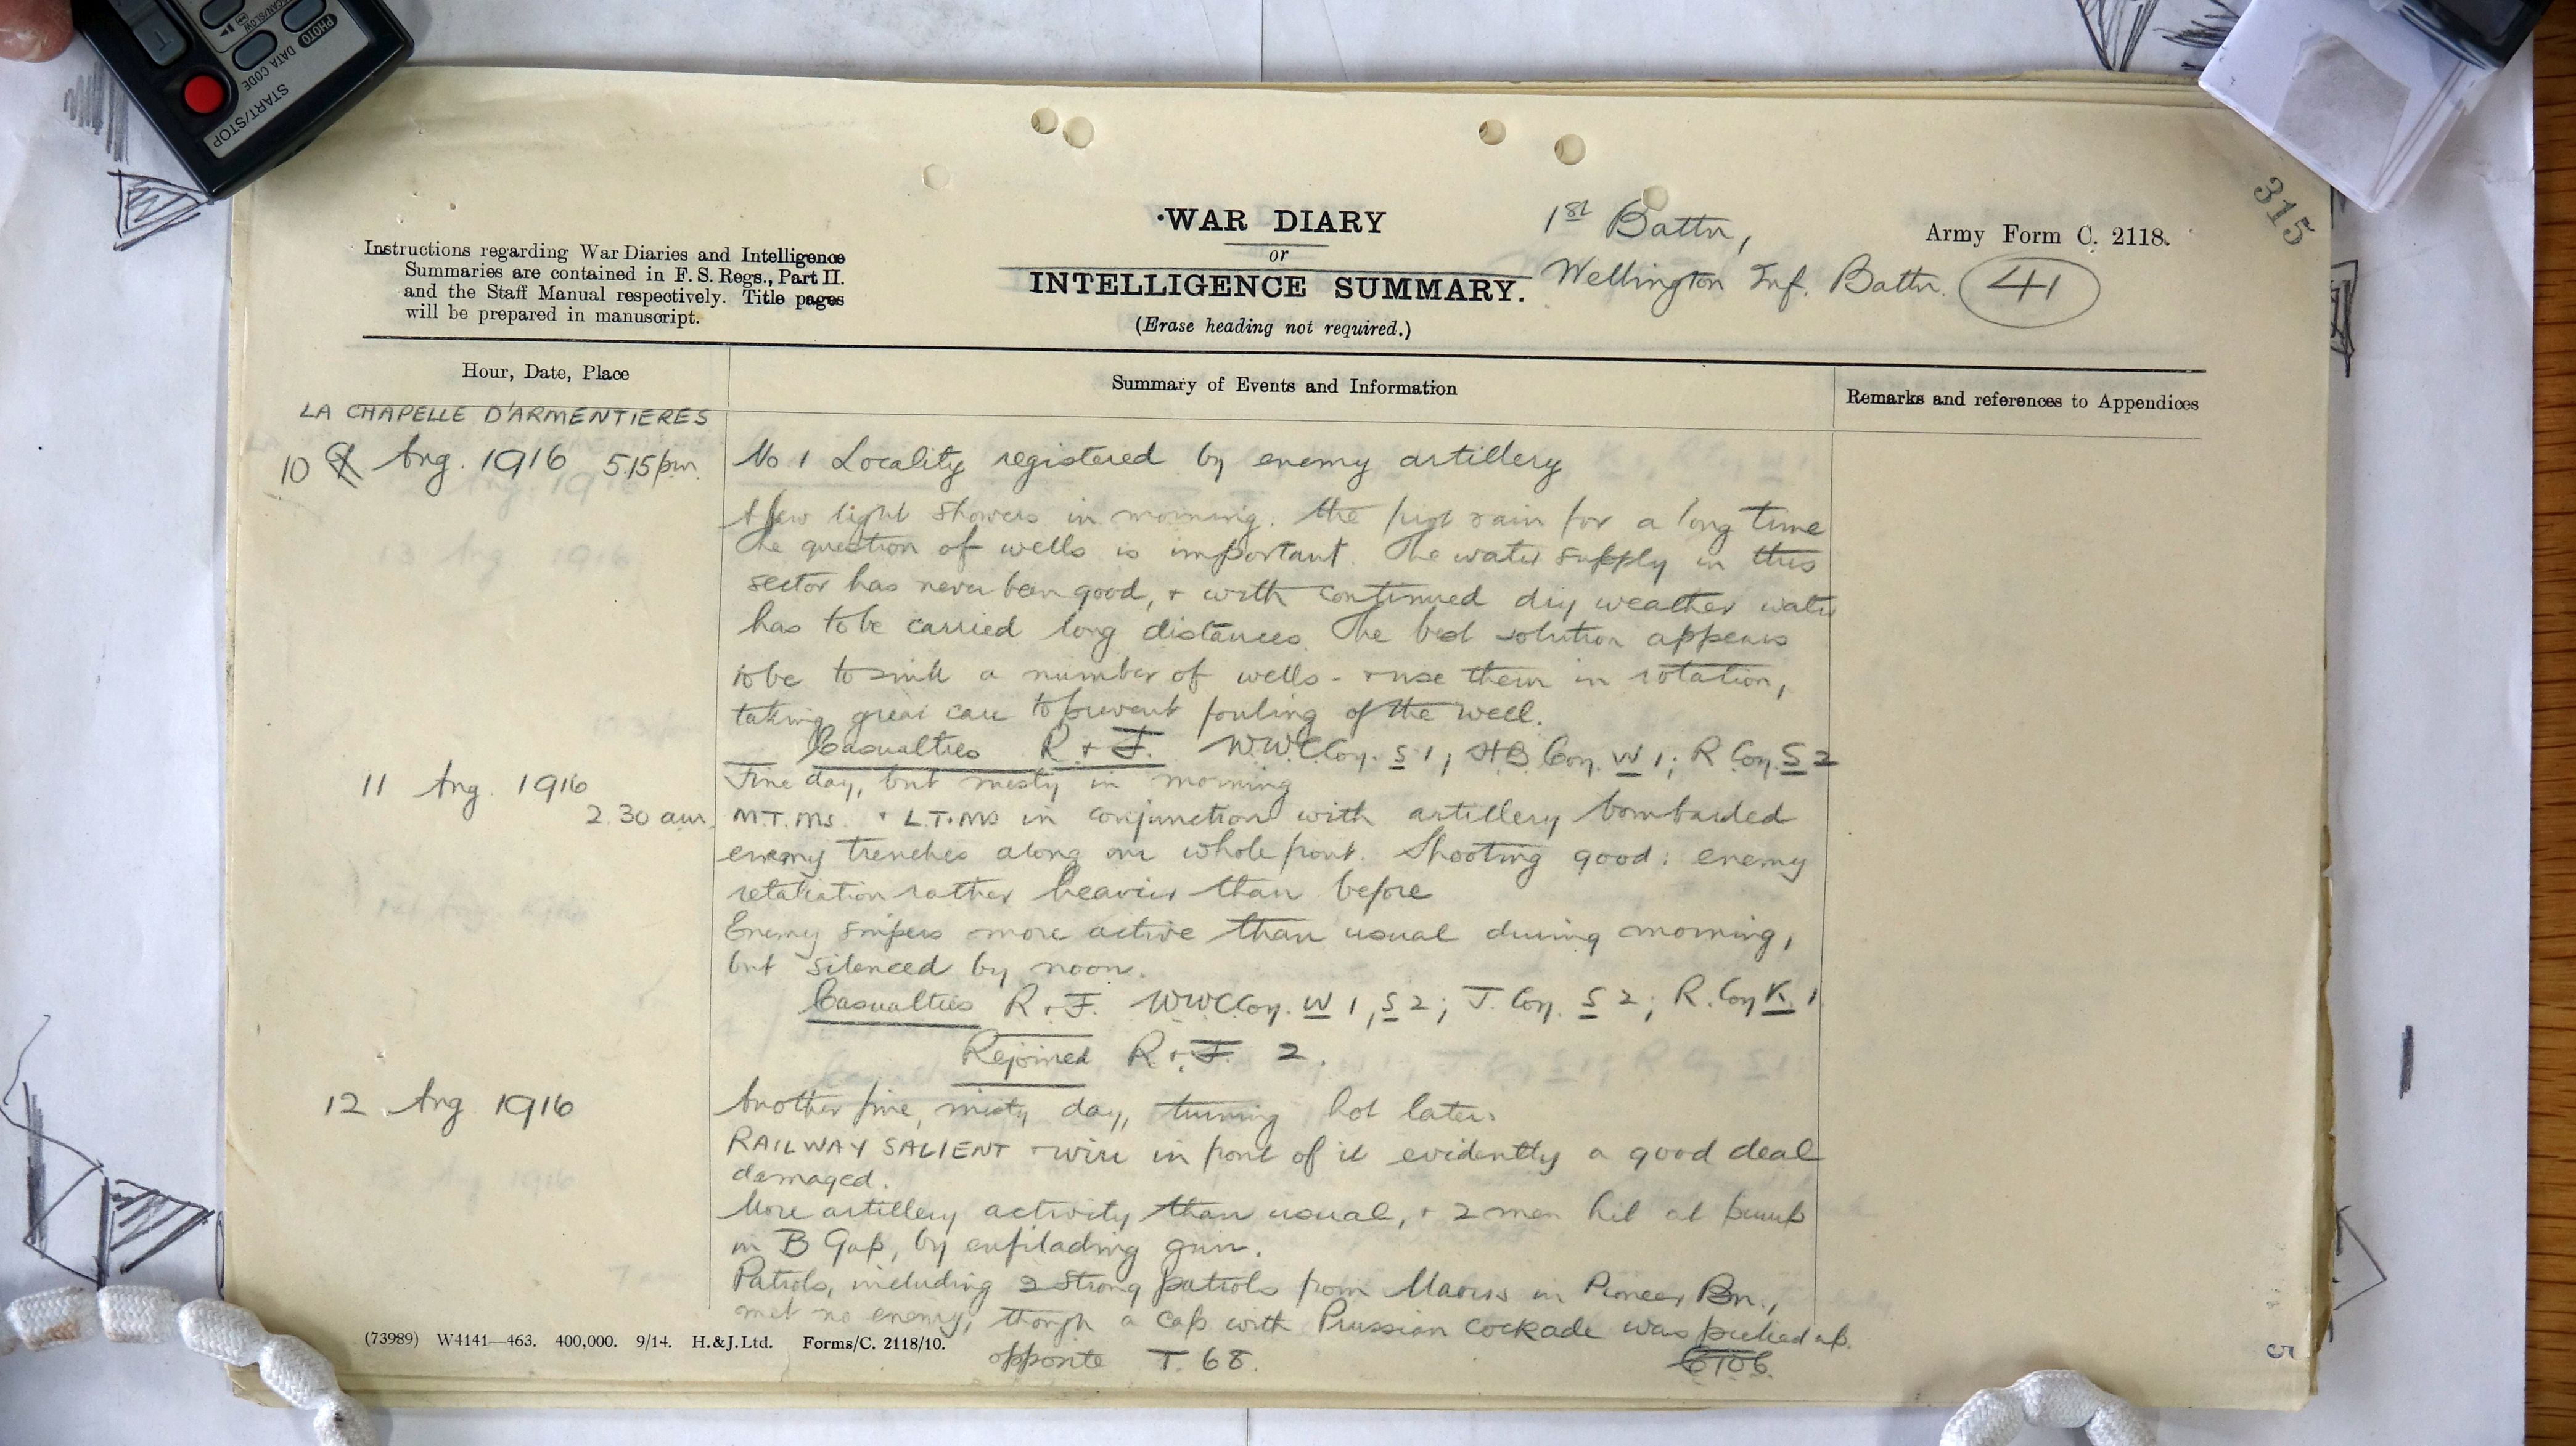 START/STOP
DATA CODE
PHOTO
315
·WAR DIARY
or
INTELLIGENCE SUMMARY.
(Erase heading not required.)
1st Battn,
Wellington Inf. Battn.
41
Army Form C. 2118.
Instructions regarding War Diaries and Intelligence
Summaries are contained in F. S. Regs., Part II.
and the Staff Manual respectively. Title pages
will be prepared in manuscript.
Hour, Date, Place
Summary of Events and Information
Remarks and references to Appendices
LA CHAPELLE D'ARMENTIERES
10 Aug. 1916 5.15 pm.
No 1 Locality registered by enemy artillery
A few light showers in morning. the first rain for a long time
The question of wells is important. The water supply in this
sector has never been good, + with continued dry weather water
has to be carried long distances. The best solution appears
to be to sink a number of wells - + use them in rotation,
taking great care to prevent fouling of the well.
Casualties R + F. W.W.C Coy. S 1, HB Coy. W 1; R Coy. S 2
11 Aug. 1916
Fine day, but misty in morning
2.30 am.
M.T.Ms. + L.T.Ms in conjunction with artillery bombarded
enemy trenches along our whole front. Shooting good: enemy
retaliation rather heavier than before
Enemy snipers more active than usual during morning,
but silenced by noon.
Casualties R + F. WWC Coy. W 1, S 2; J. Coy. S 2; R. Coy K. 1
Rejoined R. + F. 2.
12 Aug 1916
Another fine, misty day, turning hot later.
RAILWAY SALIENT + wire in front of it evidently a good deal
damaged.
More artillery activity than usual, + 2 men hit at pump
in B Gap, by enfilading gun.
Patrols, including 2 strong patrols from Maoris in Pioneer Bn.,
met no enemy, though a cap with Prussian cockade was picked up.
opposite T. 68.
(73989) W4141—463. 400,000. 9/14. H.&J.Ltd. Forms/C. 2118/10.